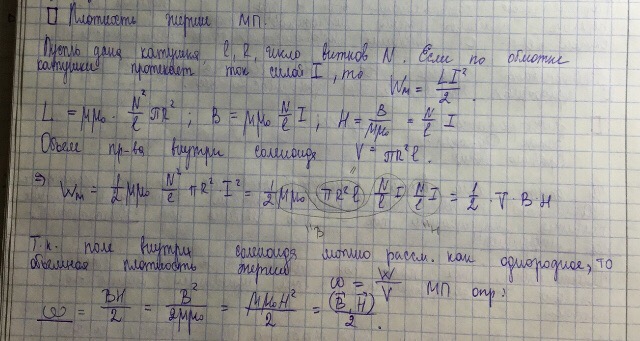 Плотность энергии МП.
Пусть дана катушка, l, R, число витков N. Если по обмотке
катушки протекает ток силой I, то Wм = LI²/2.
L = μμ₀ · N²/l πR² ; B = μμ₀ N/l I ; H = B/μμ₀ = N/l I
Объем пр-ва внутри соленоида V = πR²l.
⇒ Wм = 1/2 μμ₀ N²/l πR² I² = 1/2 μμ₀ πR²l N/l I N/l I = 1/2 · V · B · H
"B "H
Т.к. поле внутри соленоида можно рассм. как однородное, то
объемная плотность энергии ω = W/V МП опр:
ω = BH/2 = B²/2μμ₀ = μμ₀H²/2 = (B, H)/2.